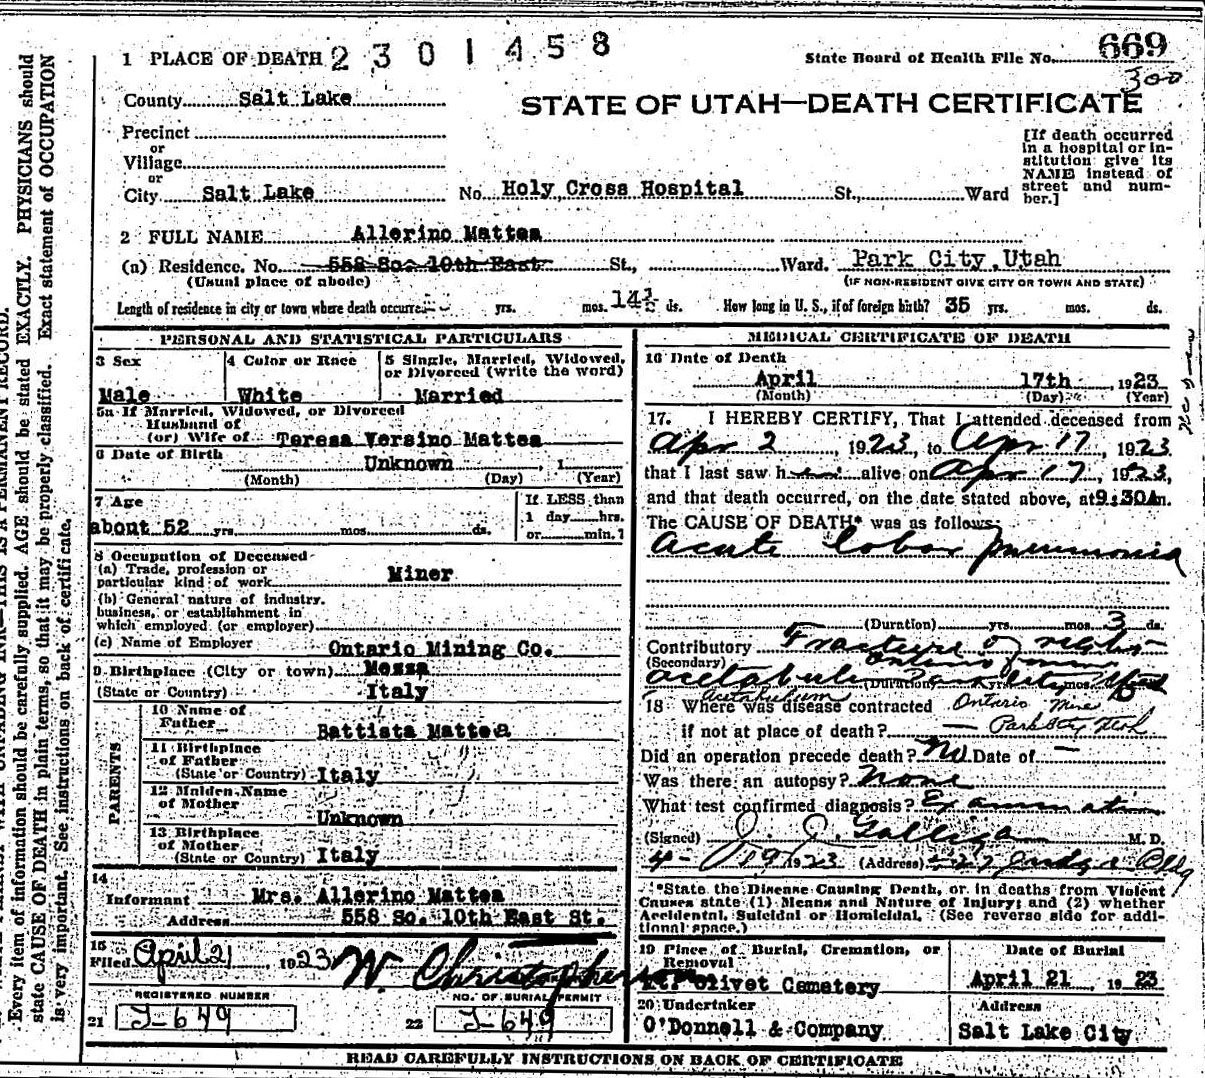 1 PLACE OF DEATH 2 3 0 1 4 5 8
State Board of Health File No. 669
300
County Salt Lake
STATE OF UTAH—DEATH CERTIFICATE
Precinct
or
Village
or
City Salt Lake No. Holy Cross Hospital St., Ward
[If death occurred
in a hospital or in-
stitution give its
NAME instead of
street and num-
ber.]
2 FULL NAME Allerino Mattea
(a) Residence. No. 558 So. 10th East St., Ward. Park City, Utah
(Usual place of abode) (IF NON-RESIDENT GIVE CITY OR TOWN AND STATE)
Length of residence in city or town where death occurred yrs. mos. 14½ ds. How long in U. S., if of foreign birth? 35 yrs. mos. ds.
PERSONAL AND STATISTICAL PARTICULARS
3 Sex
Male
4 Color or Race
White
5 Single, Married, Widowed,
or Divorced (write the word)
Married
5a If Married, Widowed, or Divorced
Husband of
(or) Wife of Teresa Versino Mattea
6 Date of Birth
Unknown , 1
(Month) (Day) (Year)
7 Age
about 52 yrs. mos. ds.
If LESS than
1 day hrs.
or min.?
8 Occupation of Deceased
(a) Trade, profession or
particular kind of work Miner
(b) General nature of industry,
business, or establishment in
which employed (or employer)
(c) Name of Employer Ontario Mining Co.
9 Birthplace (City or town) Messa
(State or Country) Italy
PARENTS
10 Name of
Father Battista Mattea
11 Birthplace
of Father
(State or Country) Italy
12 Maiden Name
of Mother
Unknown
13 Birthplace
of Mother
(State or Country) Italy
14
Informant Mrs. Allerino Mattea
Address 558 So. 10th East St.
15
Filed April 21, 1923 W. Christopherson
REGISTERED NUMBER
21 J-649
NO. OF BURIAL PERMIT
22 J-649
MEDICAL CERTIFICATE OF DEATH
16 Date of Death
April 17th, 1923
(Month) (Day) (Year)
17. I HEREBY CERTIFY, That I attended deceased from
Apr 2, 1923, to Apr 17, 1923
that I last saw him alive on Apr 17, 1923,
and that death occurred, on the date stated above, at 9:30A m.
The CAUSE OF DEATH* was as follows:
Acute lobar pneumonia
(Duration) yrs. mos. 3 ds.
Contributory Fracture of right
(Secondary) Ontario mine
acetabulum Park City Utah
(Duration) yrs. mos.
Acetabulum
18 Where was disease contracted Ontario Mine
if not at place of death? — Park City Utah
Did an operation precede death? No Date of —
Was there an autopsy? None
What test confirmed diagnosis? Examination
(Signed) J. J. Galligan M. D.
4- 19, 1923 (Address) Judge Bldg
*State the Disease Causing Death, or, in deaths from Violent
Causes state (1) Means and Nature of Injury; and (2) whether
Accidental, Suicidal or Homicidal. (See reverse side for addi-
tional space.)
19 Place of Burial, Cremation, or
Removal
Mt. Olivet Cemetery
Date of Burial
April 21, 1923
20 Undertaker
O'Donnell & Company
Address
Salt Lake City
READ CAREFULLY INSTRUCTIONS ON BACK OF CERTIFICATE
Every item of information should be carefully supplied. AGE should be stated EXACTLY. PHYSICIANS should
state CAUSE OF DEATH in plain terms, so that it may be properly classified. Exact statement of OCCUPATION
is very important. See instructions on back of certificate.